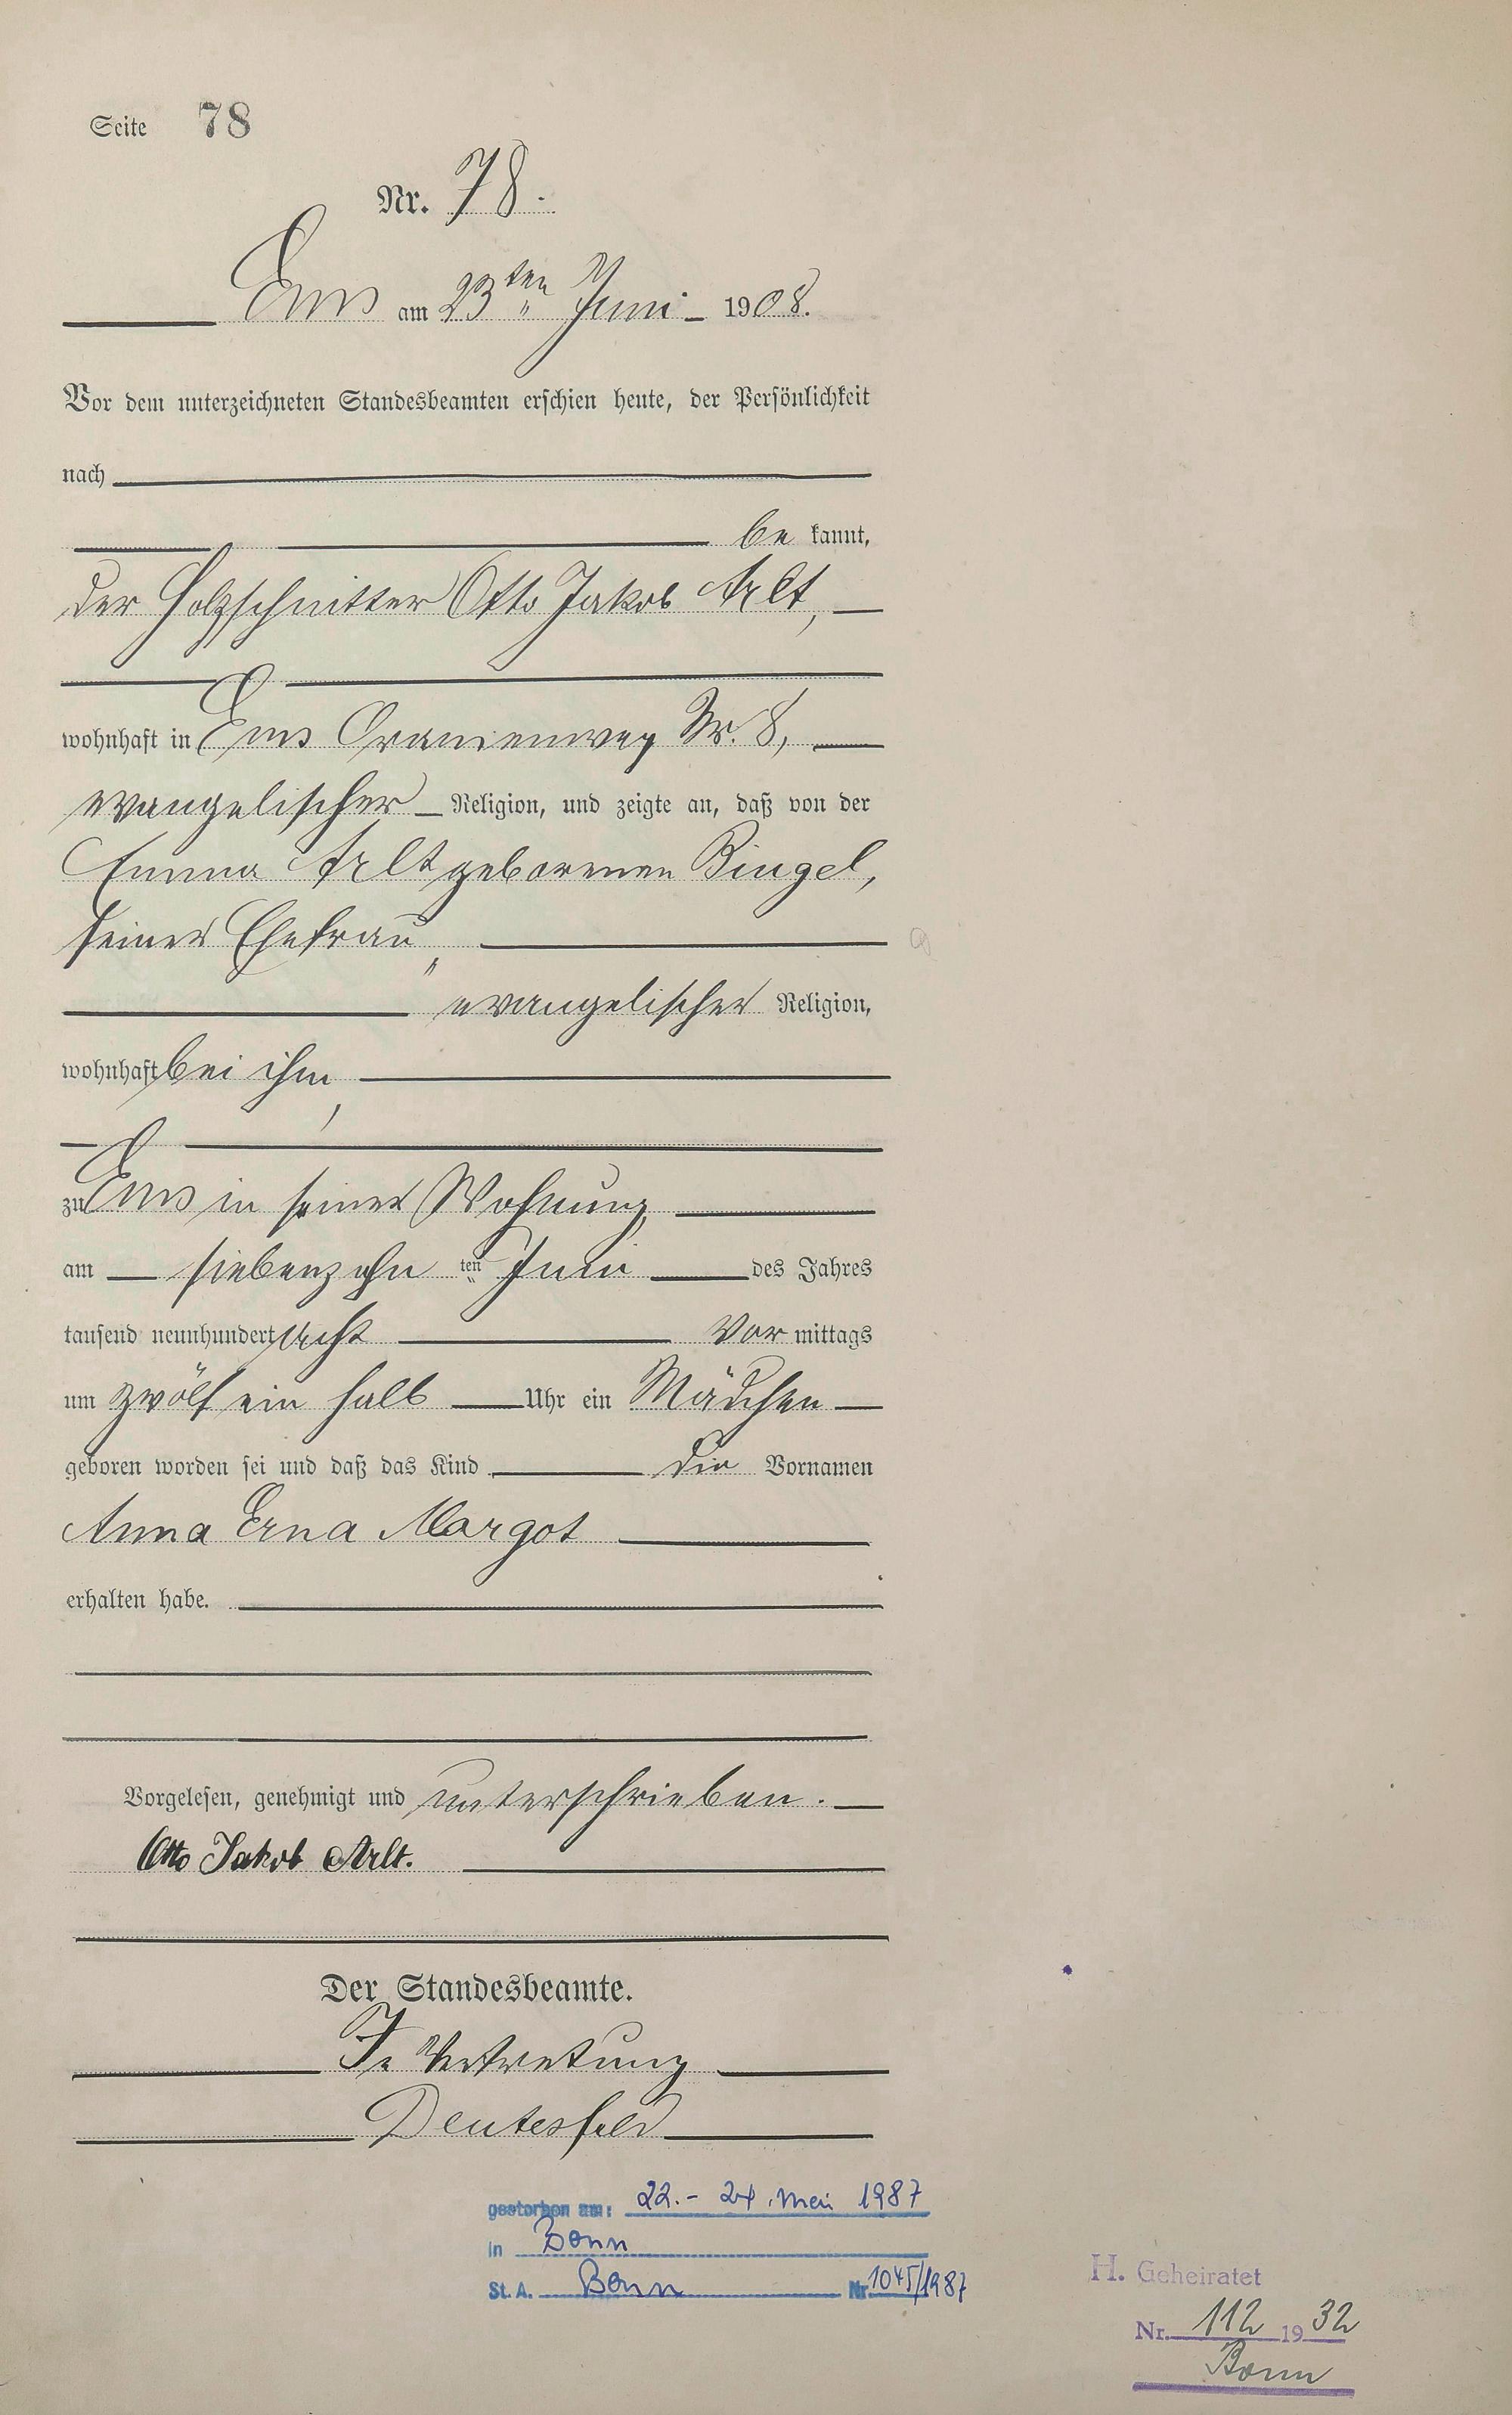 Seite 78
Nr. 78.
Ems am 23ten Juni 1908.
Vor dem unterzeichneten Standesbeamten erschien heute, der Persönlichkeit
nach
be kannt,
der Holzschnitter Otto Jakob Arlt,
wohnhaft in Ems Oranienweg Nr. 8,
evangelischer Religion, und zeigte an, daß von der
Emma Arlt geborenen Bingel,
seiner Ehefrau,
evangelischer Religion,
wohnhaft bei ihm,
zu Ems in seiner Wohnung,
am siebenzehn ten Juni des Jahres
tausend neunhundert acht Vor mittags
um zwölf ein halb Uhr ein Mädchen
geboren worden sei und daß das Kind die Vornamen
Anna Erna Margot
erhalten habe.
Vorgelesen, genehmigt und unterschrieben.
Otto Jakob Arlt.
Der Standesbeamte.
In Vertretung
Deutesfeld
gestorben am: 22.- 24. Mai 1987
in Bonn
St. A. Bonn Nr. 1045/1987
H. Geheiratet
Nr. 112 1932
Bonn